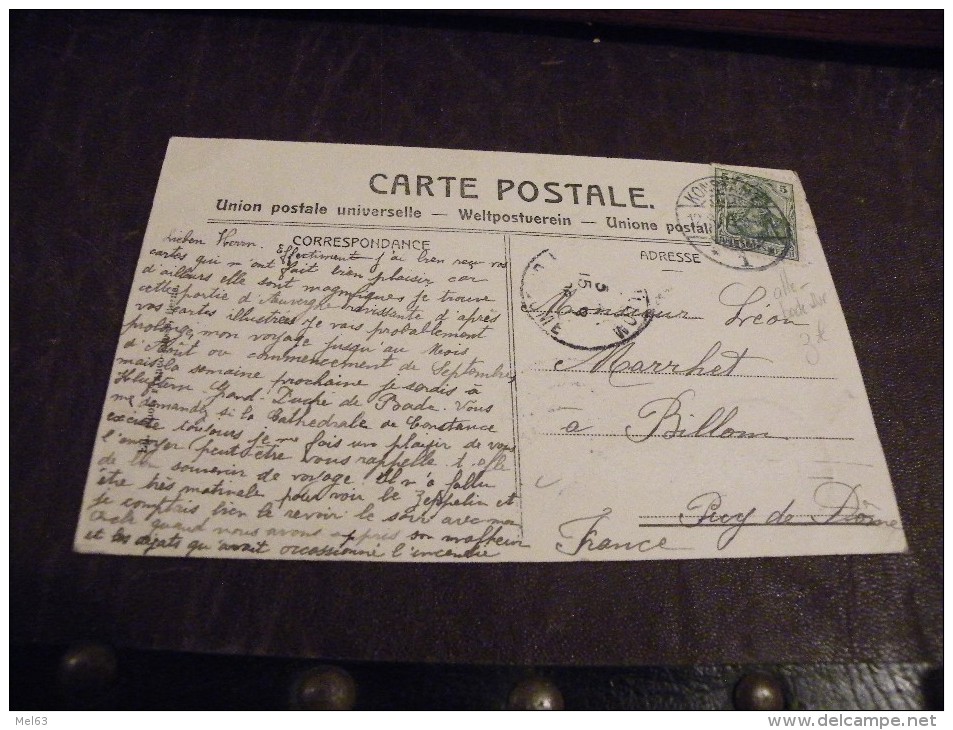 CARTE POSTALE.
Union postale universelle — Weltpostverein — Unione postale
CORRESPONDANCE
ADRESSE
Lieben Herrn. Effectiment j'ai bien reçu vos
cartes qui m'ont fait bien plaisir car
d'ailleurs elle sont magnifiques je trouve
cette partie d'Auvergne ravissante d'après
vos cartes illustrées je vais probablement
prolongé mon voyage jusqu'au Mois
d'Août ou commencement de Septembre
mais la semaine prochaine je serais à
Grand Duché de Baade. Vous
me demandez si la Cathédrale de Constance
existe toujours je me fais un plaisir de vous
l'envoyer peut être vous rappelle
de souvenir de voyage. Il m'a fallu
être très matinale pour voir le Zeppelin et
je comptais bien le revoir le soir avec mon
Oncle quand nous avons appris son malheur
et les dégats qu'avait occassionné l'incendie
Monsieur Léon
Marrhet
à Billom
Puy de Dôme
France
KONSTANZ
5
15
DOME
3€
Mel63
delcampe.net